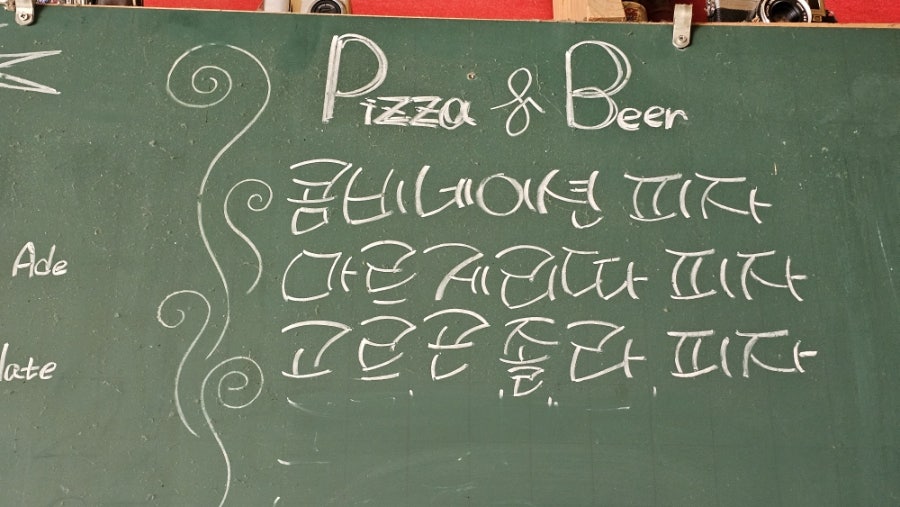 Pizza & Beer
콤비네이션 피자
마르게리따 피자
고르곤졸라 피자
Ade
late